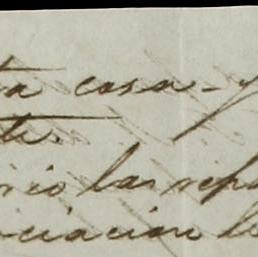 ta casa - y
te.
rio las repa
iciacion le